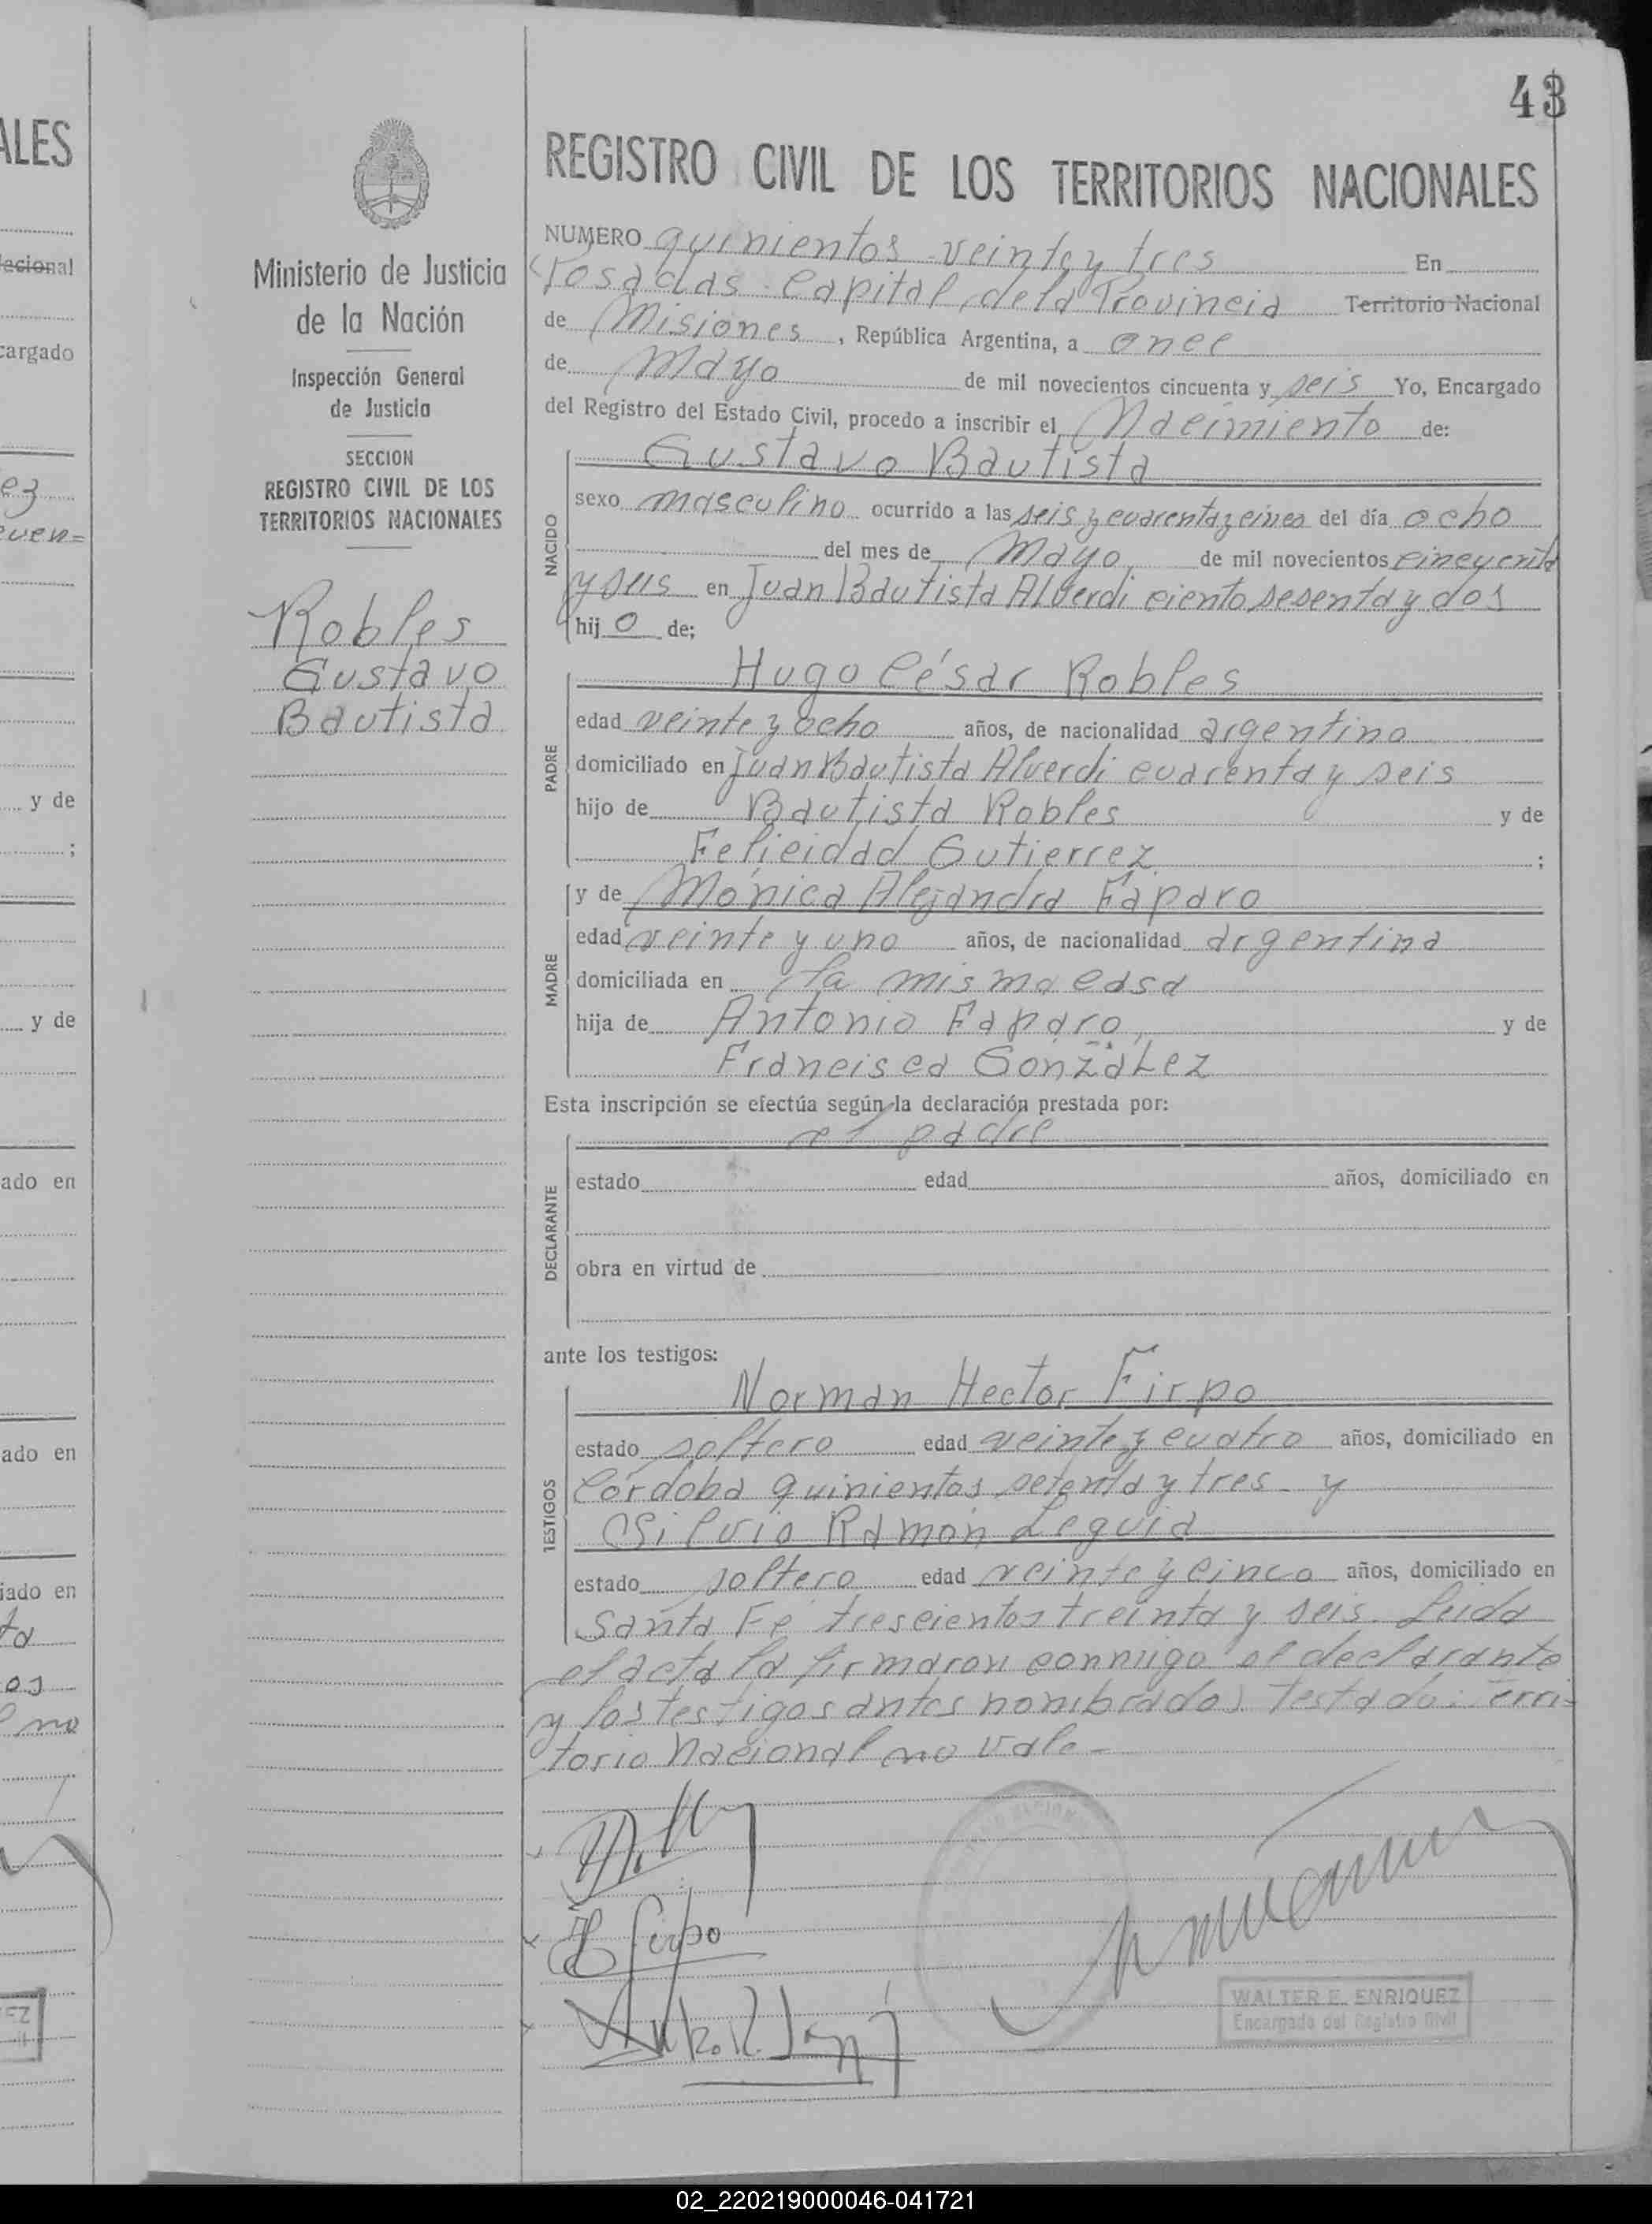 43
REGISTRO CIVIL DE LOS TERRITORIOS NACIONALES
Ministerio de Justicia
de la Nación
Inspección General
de Justicia
SECCION
REGISTRO CIVIL DE LOS
TERRITORIOS NACIONALES
Robles
Gustavo
Bautista
NUMERO quinientos veinte y tres En
Posadas Capital de la Provincia Territorio Nacional
de Misiones, República Argentina, a once
de Mayo de mil novecientos cincuenta y seis Yo, Encargado
del Registro del Estado Civil, procedo a inscribir el Nacimiento de:
NACIDO
Gustavo Bautista
sexo masculino ocurrido a las seis y cuarenta y cinco del día ocho
del mes de Mayo de mil novecientos cincuenta
y seis en Juan Bautista Alverdi ciento sesenta y dos
hijo de;
PADRE
Hugo César Robles
edad veinte y ocho años, de nacionalidad argentino
domiciliado en Juan Bautista Alverdi cuarenta y seis
hijo de Bautista Robles y de
Felicidad Gutierrez ;
MADRE
y de Mónica Alejandra Faparo
edad veinte y uno años, de nacionalidad argentina
domiciliada en la misma casa
hija de Antonio Faparo y de
Francisca González
Esta inscripción se efectúa según la declaración prestada por:
DECLARANTE
el padre
estado edad años, domiciliado en
obra en virtud de
ante los testigos:
TESTIGOS
Norman Hector Firpo
estado soltero edad veinte y cuatro años, domiciliado en
Córdoba quinientos setenta y tres y
Silvio Ramón Leguia
estado soltero edad veinte y cinco años, domiciliado en
Santa Fé trescientos treinta y seis. Leida
el acta la firmaron conmigo el declarante
y los testigos antes nombrados Testado: Terri-
torio Nacional no vale-
Firpo
WALTER E. ENRIQUEZ
Encargado del Registro Civil
ALES
Nacional
cargado
y de
;
y de
ado en
ado en
iado en
ta
os
no
EZ
02_220219000046-041721